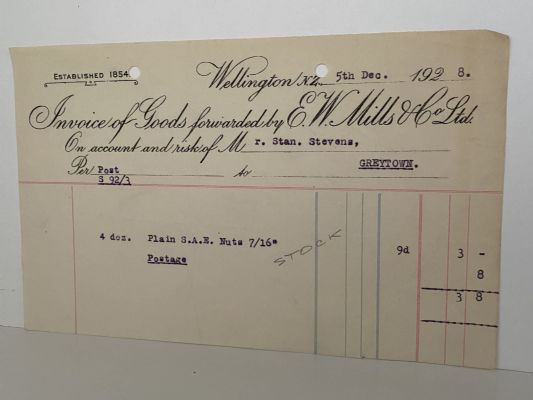 ESTABLISHED 1854.
Wellington N.Z. 5th Dec. 1928.
Invoice of Goods forwarded by E. W. Mills & Co Ltd.
On account and risk of Mr. Stan. Stevens,
Per Post to GREYTOWN.
S 92/3
4 doz. Plain S.A.E. Nuts 7/16" 9d 3 -
Postage 8
STOCK
3 8